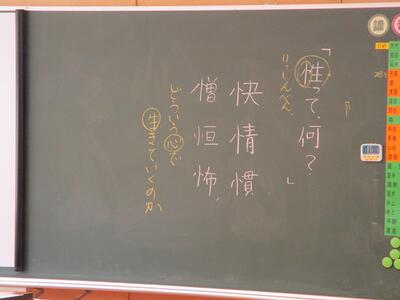 「性って、何?」
りっしんべん
快情慣
憎恒怖、
どういう心で
生きていくのか